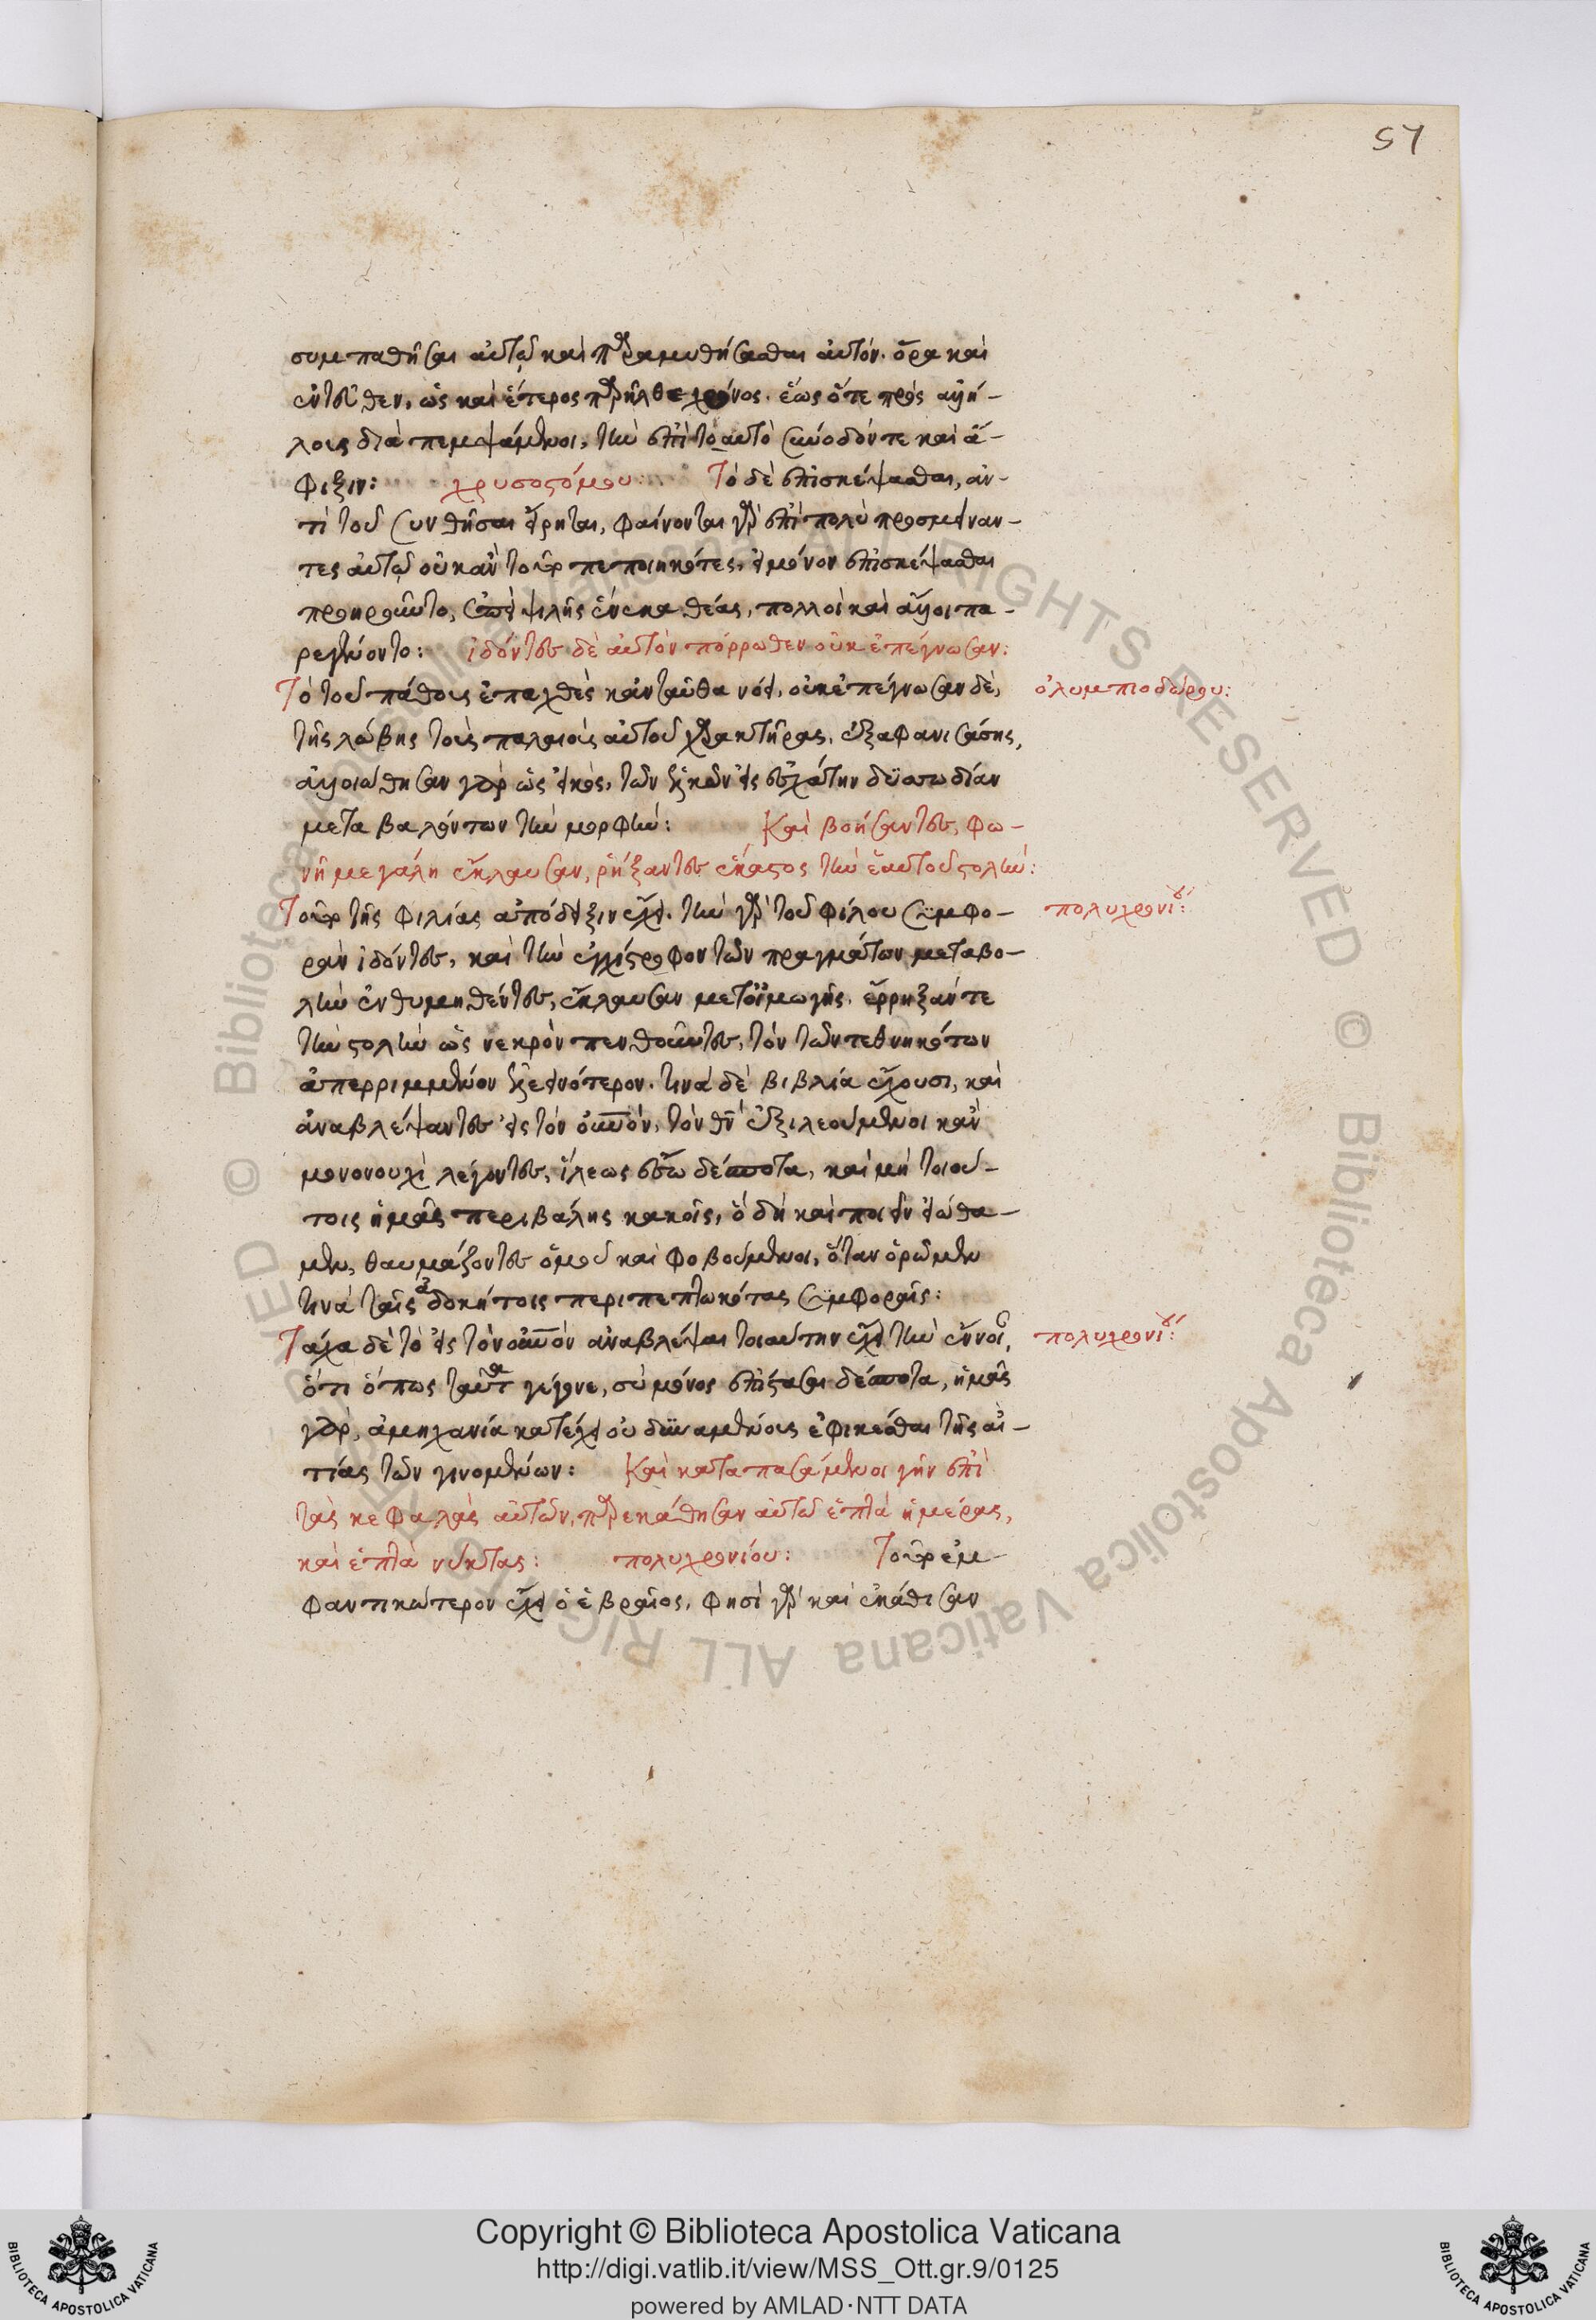 57
συμπαθῆσαι αὐτῷ καὶ παραμυθήσασθαι αὐτόν. ὅρα καὶ
ἐντεῦθεν, ὡς καὶ ἕτερος παρῆλθε χρόνος. ἕως ὅτε πρὸς ἀλλή-
λους διαπεμψάμενοι, τὴν ἐπὶ τὸ αὐτὸ σύνοδόν τε καὶ ἄ-
φιξιν: χρυσοστόμου: Τὸ δὲ ἐπισκέψασθαι, ἀν-
τὶ τοῦ συνθῆσαι εἴρηται, φαίνονται γὰρ ἐπιπολὺ προσμείναν-
τες αὐτῷ οὐκ ἂν τοῦτο πεποιηκότες, εἰ μόνον ἐπισκέψασθαι
προῃροῦντο, ἐπεὶ ψιλῆς ἕνεκα θέας, πολλοὶ καὶ ἄλλοι πα-
ρεγένοντο: ἰδόντες δὲ αὐτὸν πόρρωθεν οὐκ ἐπέγνωσαν:
Τὸ τοῦ πάθους ἐπαχθὲς κἀνταῦθα νόει, οὐκ ἐπέγνωσαν δὲ, ὀλυμπιοδώρου:
τῆς λώβης τοὺς παλαιοὺς αὐτοῦ χαρακτῆρας, ἐξαφανισάσης,
ἠλλοιώθησαν γὰρ ὡς εἰκὸς, τῶν ἑλκῶν εἰς ἐσχάτην δυσωδίαν
μεταβαλόντων τὴν μορφήν: Καὶ βοήσαντες, φω-
νῇ μεγάλῃ ἔκλαυσαν, ῥήξαντες ἕκαστος τὴν ἑαυτοῦ στολήν:
Τοῦτο τῆς φιλίας ἀπόδειξιν ἔχει. τὴν γὰρ τοῦ φίλου συμφο- πολυχρονίου:
ρὰν ἰδόντες, καὶ τὴν ἀγχίστροφον τῶν πραγμάτων μεταβο-
λὴν ἐνθυμηθέντες, ἔκλαυσαν μετ' οἰμωγῆς. ἔρρηξάν τε
τὴν στολὴν ὡς νεκρὸν πενθοῦντες, τὸν τῶν τεθνηκότων
ἀπερριμμένον ἐλεεινότερον. τινὰ δὲ βιβλία ἔχουσι, καὶ
ἀναβλέψαντες εἰς τὸν οὐνον, τὸν θν ἐξιλεούμενοι κἂν
μονονουχὶ λέγοντες, ἵλεως ἔσω δέσποτα, καὶ μὴ τοιού-
τοις ἡμᾶς περιβάλῃς κακοῖς, ὃ δὴ καὶ ποιεῖν εἰώθα-
μεν, θαυμάζοντες ὁμοῦ καὶ φοβούμενοι, ὅταν ὁρῶμεν
τινὰ ταῖς ἀδοκήτοις περιπεπτωκότας συμφοραῖς:
Τάχα δὲ τὸ εἰς τὸν οὐνον ἀναβλέψαι τοιαύτην ἔχει τὴν ἔννοιαν, πολυχρονίου:
ὅτι ὅπως ταῦτα γέγονε, σὺ μόνος ἐπίστασαι δέσποτα, ἡμᾶς
γὰρ, ἀμηχανία κατέχει οὐ δυναμένους ἐφικέσθαι τῆς αἰ-
τίας τῶν γινομένων: Καὶ καταπασάμενοι γῆν ἐπὶ
τὰς κεφαλὰς αὐτῶν, παρεκάθισαν αὐτῷ ἑπτὰ ἡμέρας,
καὶ ἑπτὰ νύκτας: πολυχρονίου: Τοῦτο ἐμ-
φαντικώτερον ἔχει ὁ ἑβραῖος, φησὶ γὰρ καὶ ἐκάθισαν
Copyright © Biblioteca Apostolica Vaticana
http://digi.vatlib.it/view/MSS_Ott.gr.9/0125
powered by AMLAD·NTT DATA